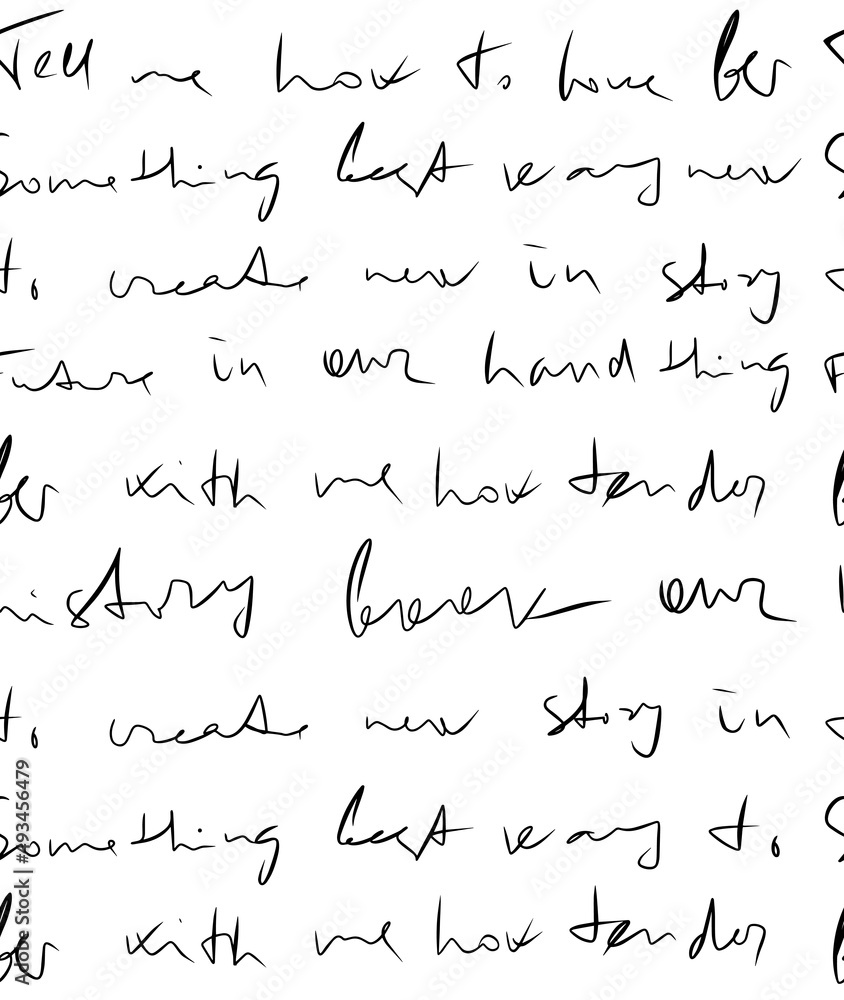 Tell me how to love her
Something best way new
to create new in story
Future in our hand thing
her with me how tender
history our
to create new story in
Something best way to
her with me how tender
Adobe Stock | #493456479